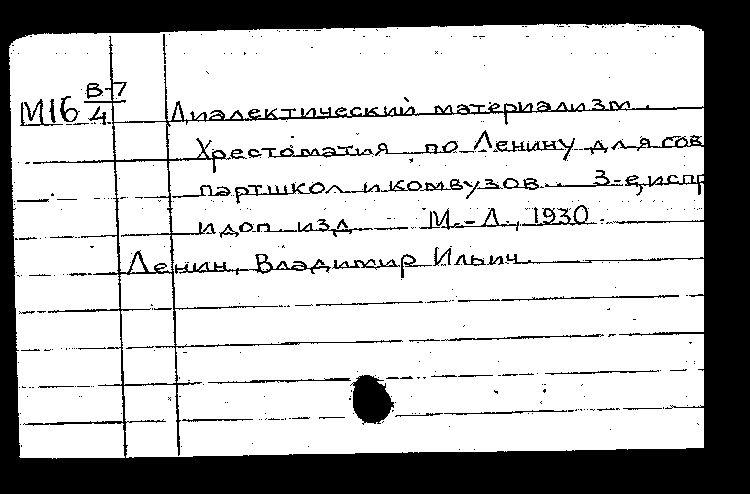 М16 В-7/4 Диалектический материализм.
Хрестоматия по Ленину для сов
партшкол и комвузов.. 3-е, испр
и доп изд М.-Л., 1930.
Ленин, Владимир Ильич.